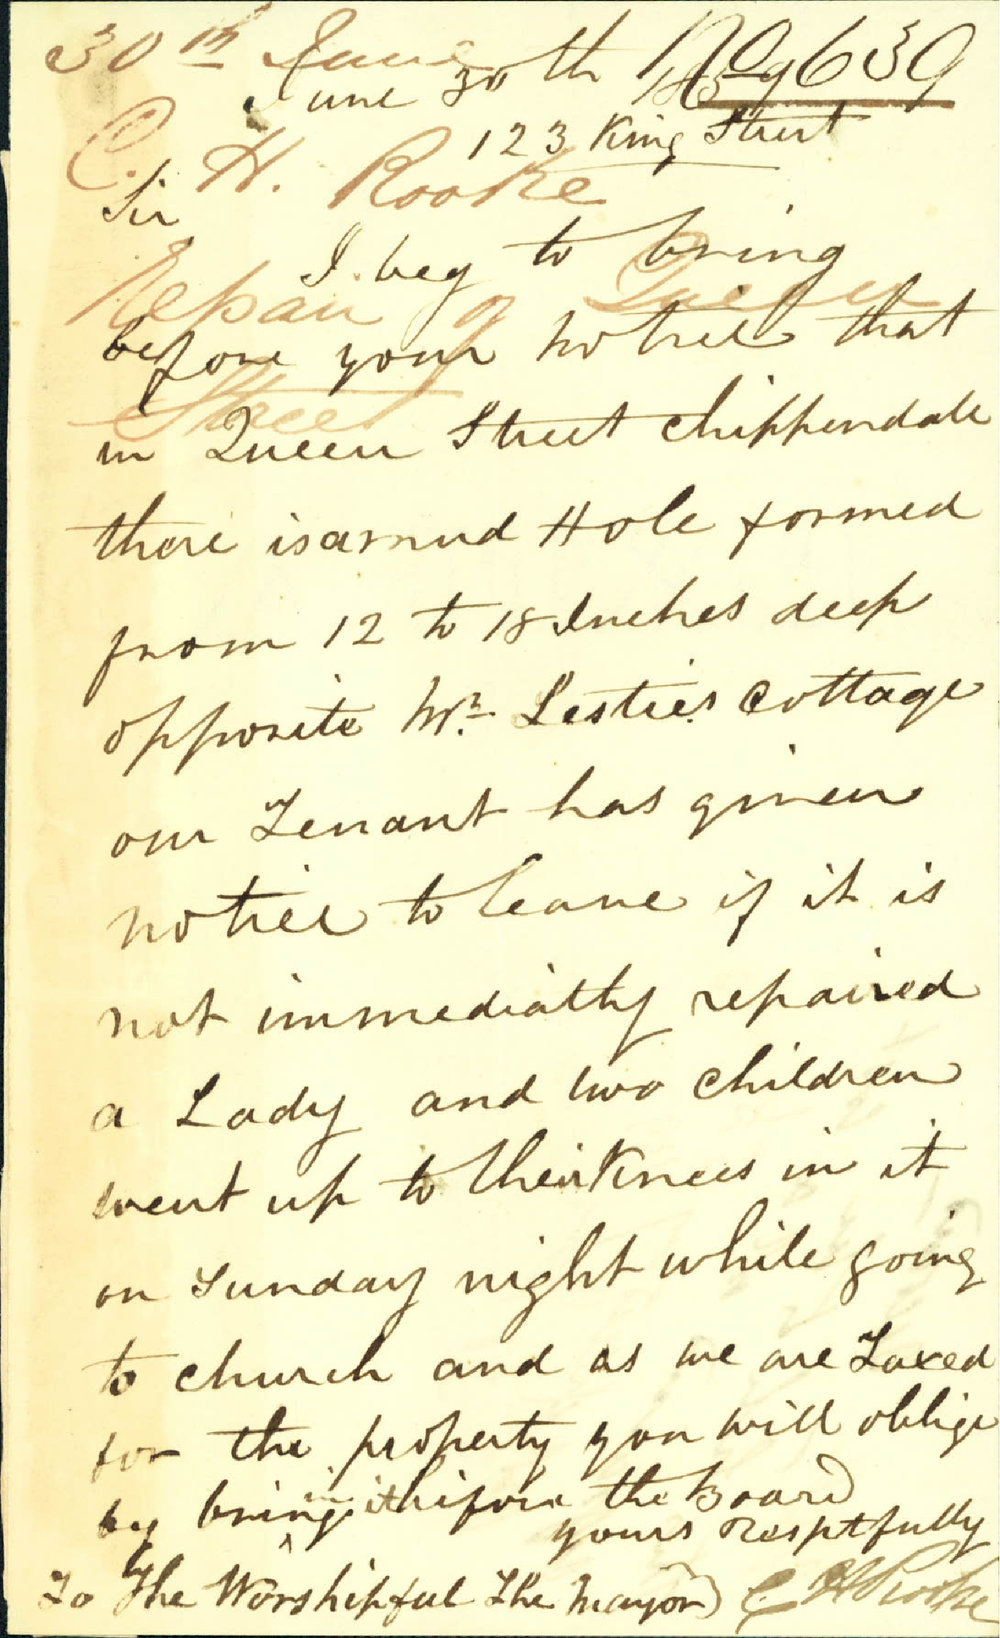 30th June
No 639
June 30th 1859
123 King Street
C. H. Rooke
Sir
I beg to bring
Repair of Queen
before your notice that
Street
in Queen Street Chippendale
there is a mud Hole formed
from 12 to 18 Inches deep
opposite Mr. Leslies Cottage
our Tenant has given
notice to leave if it is
not immediatly repaired
a Lady and two children
went up to their Knees in it
on Sunday night while going
to church and as we are Taxed
for the property you will oblige
by bringing it before the Board
yours Resptfully
To The Worshipful The Mayor C H Rooke